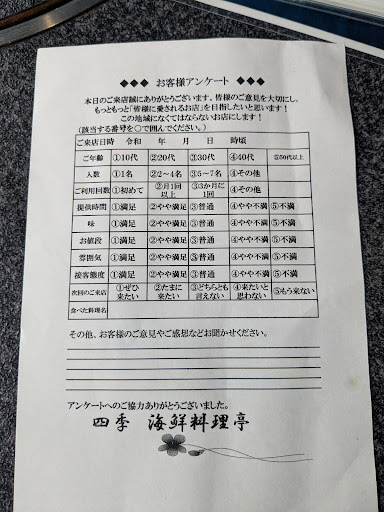 ◆◆◆ お客様アンケート ◆◆◆
本日のご来店誠にありがとうございます。皆様のご意見を大切にし、
もっともっと「皆様に愛されるお店」を目指したいと思います!
この地域になくてはならないお店にします!
(該当する番号を○で囲んでください。)
ご来店日時 令和 年 月 日 時頃
ご年齢 ①10代 ②20代 ③30代 ④40代 ⑤50代以上
人数 ①1名 ②2~4名 ③5~7名 ④その他
ご利用回数 ①初めて ②月1回以上 ③3か月に1回 ④その他
提供時間 ①満足 ②やや満足 ③普通 ④やや不満 ⑤不満
味 ①満足 ②やや満足 ③普通 ④やや不満 ⑤不満
お値段 ①満足 ②やや満足 ③普通 ④やや不満 ⑤不満
雰囲気 ①満足 ②やや満足 ③普通 ④やや不満 ⑤不満
接客態度 ①満足 ②やや満足 ③普通 ④やや不満 ⑤不満
次回のご来店 ①ぜひ来たい ②たまに来たい ③どちらとも言えない ④来たいと思わない ⑤もう来ない
食べた料理名
その他、お客様のご意見やご感想などお聞かせください。
アンケートへのご協力ありがとうございました。
四季 海鮮料理亭